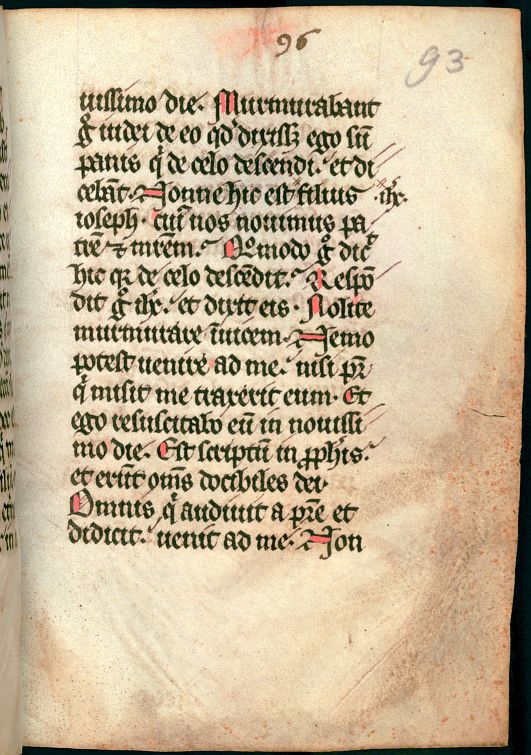 96
93
uissimo die. Murmurabant
g̊ iudei de eo qd̓ dixiss₃ ego sū
panis q̓ de celo descendi. et di
cebāt. Nonne hic est filius ·ih̄c·
ioseph. cui᷒ nos nouimus pa
trē ⁊ mr̄em. Qͦmodo g̊ dic̓
hic qꝛ de celo descēdit. Respō
dit g̊ ih̄c. et dixit eis. Nolite
murmurare īuicem. Nemo
potest uenire ad me. nisi pr̄
q̓ misit me traxerit eum. Et
ego resuscitabo eū in nouissi
mo die. Est scriptū in ꝓph̄is.
et erūt om̄s docibiles dei.
Omnis q̓ audiuit a pr̄e et
didicit. uenit ad me. Non